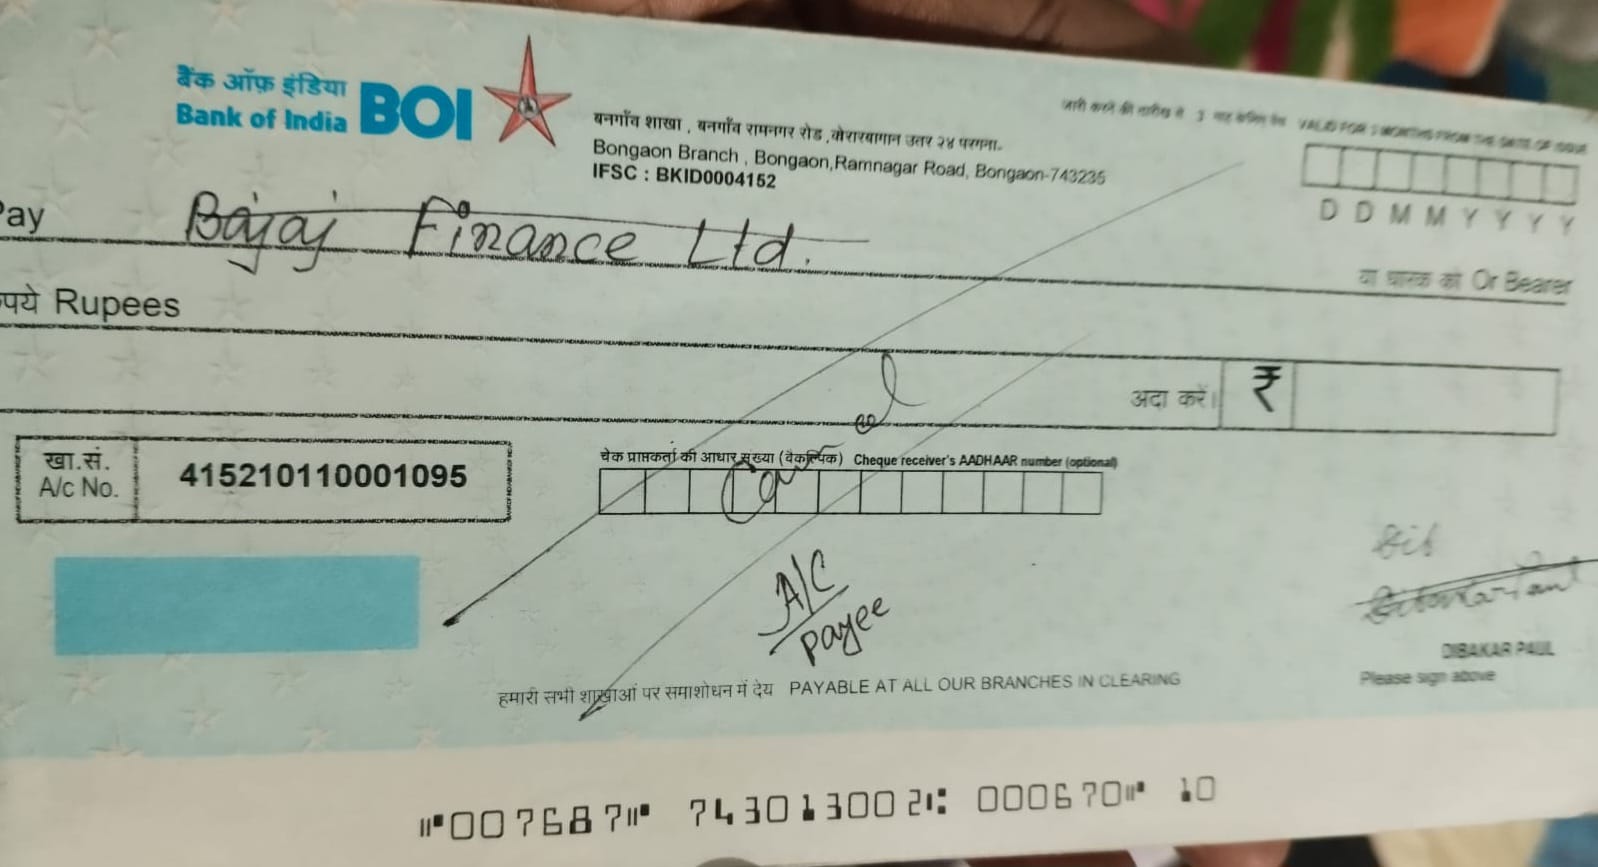 बैंक ऑफ़ इंडिया
Bank of India BOI
बनगाँव शाखा , बनगाँव रामनगर रोड ,बोरारबागान उत्तर २४ परगना-
Bongaon Branch , Bongaon,Ramnagar Road, Bongaon-743235
IFSC : BKID0004152
जारी करने की तारीख से 3 माह के लिए वैध VALID FOR 3 MONTHS FROM THE DATE OF ISSUE
D D M M Y Y Y Y
Pay Bajaj Finance Ltd.
या धारक को Or Bearer
रुपये Rupees
अदा करें। ₹
खा.सं.
A/c No. 415210110001095
चेक प्राप्तकर्ता की आधार संख्या (वैकल्पिक) Cheque receiver's AADHAAR number (optional)
Cancel
A/C
Payee
Dibakar Paul
DIBAKAR PAUL
Please sign above
हमारी सभी शाखाओं पर समाशोधन में देय PAYABLE AT ALL OUR BRANCHES IN CLEARING
⑈007687⑈ 743013002⑆ 000670⑈ 10